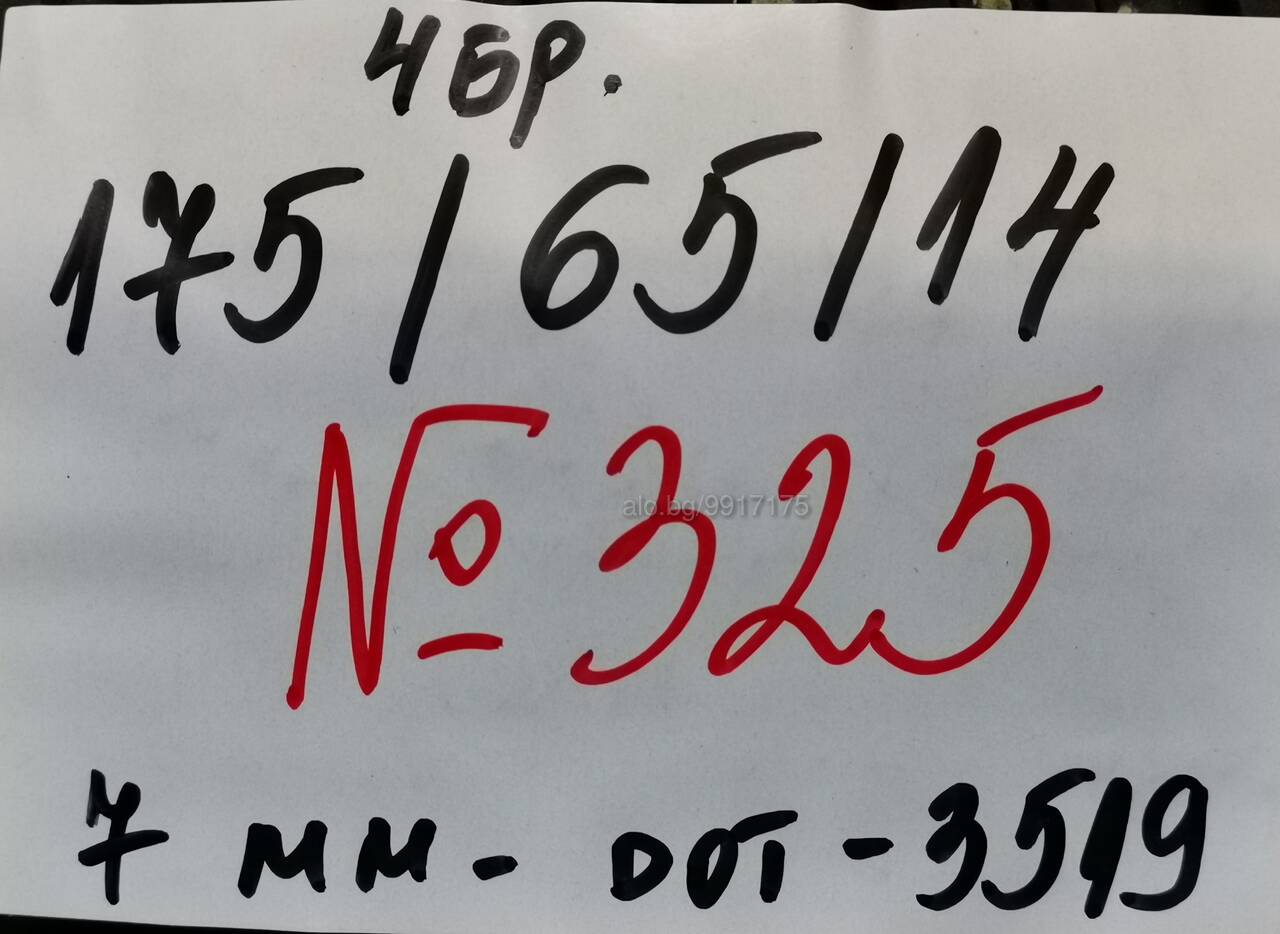 4 бр.
175/65/14
№ 325
alo.bg/9917175
7 мм - DOT - 3519